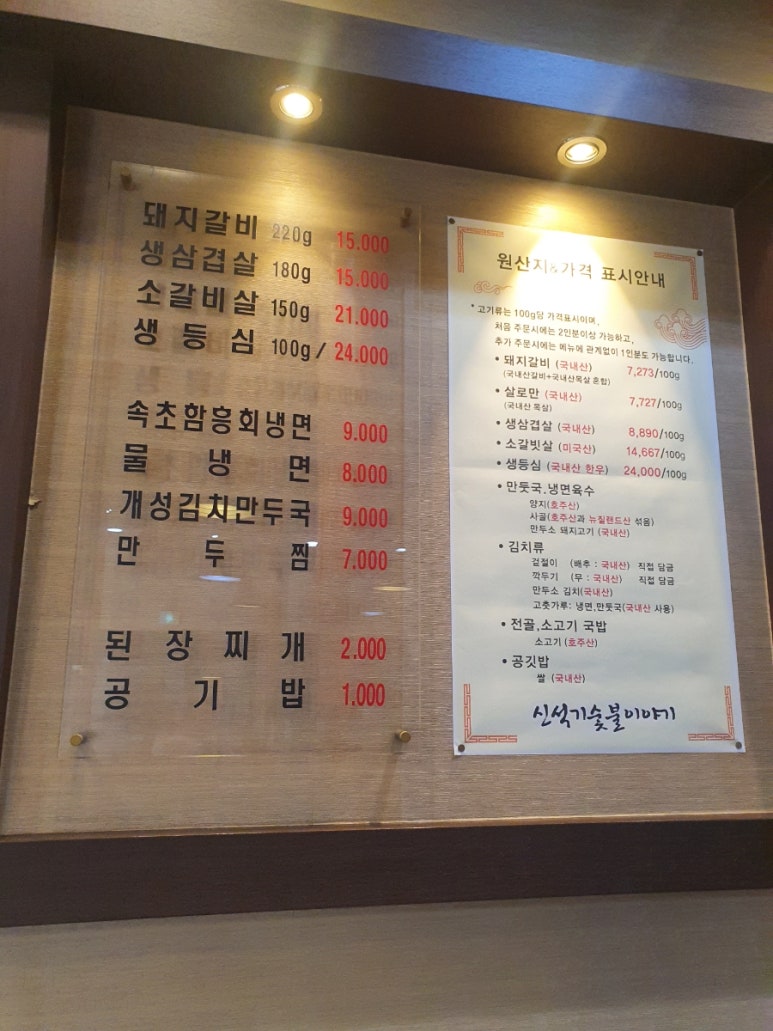 돼지갈비 220g 15.000
생삼겹살 180g 15.000
소갈비살 150g 21.000
생등심 100g / 24.000
속초함흥회냉면 9.000
물냉면 8.000
개성김치만두국 9.000
만두찜 7.000
된장찌개 2.000
공기밥 1.000
원산지&가격 표시안내
* 고기류는 100g당 가격표시이며,
처음 주문시에는 2인분이상 가능하고,
추가 주문시에는 메뉴에 관계없이 1인분도 가능합니다.
• 돼지갈비 (국내산) 7,273/100g
(국내산갈비+국내산목살 혼합)
• 살로만 (국내산) 7,727/100g
(국내산 목살)
• 생삼겹살 (국내산) 8,890/100g
• 소갈빗살 (미국산) 14,667/100g
• 생등심 (국내산 한우) 24,000/100g
• 만둣국.냉면육수
양지(호주산)
사골(호주산과 뉴질랜드산 섞음)
만두소 돼지고기 (국내산)
• 김치류
겉절이 (배추 : 국내산) 직접 담금
깍두기 (무 : 국내산) 직접 담금
만두소 김치(국내산)
고춧가루: 냉면,만둣국(국내산 사용)
• 전골.소고기 국밥
소고기 (호주산)
• 공깃밥
쌀 (국내산)
신석기숯불이야기